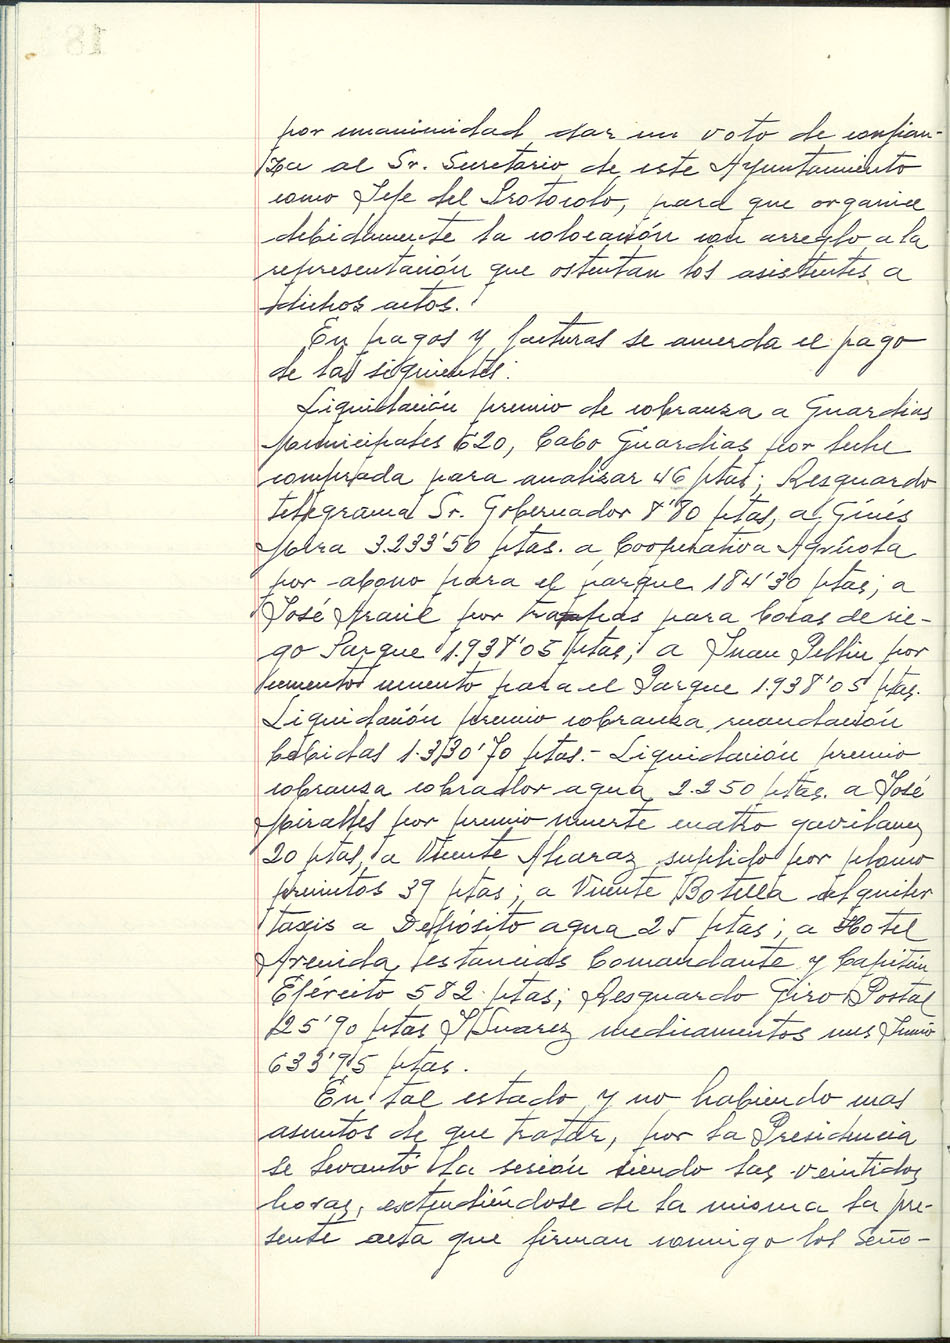 por unanimidad dar un voto de confian-
za al Sr. Secretario de este Ayuntamiento
como Jefe del Protocolo, para que organice
debidamente la colocación con arreglo a la
representación que ostentan los asistentes a
dichos actos.
En pagos y facturas se acuerda el pago
de las siguientes:
Liquidación premio de cobranza a Guardias
Municipales 620, Cabo Guardias por leche
comprada para analizar 46 ptas; Resguardo
telegrama Sr. Gobernador 7'80 ptas, a Ginés
Mira 3.233'50 ptas. a Cooperativa Agrícola
por abono para el parque 184'30 ptas; a
José Aracil por para bocas de rie-
go Parque 1.938'05 ptas; a Juan Pellín por
cemento para el Parque 1.938'05 ptas.
Liquidación premio cobranza recaudación
bebidas 1.330'70 ptas.- Liquidación premio
cobranza cobrador agua 2.250 ptas. a José
Miralles por premio muerte cuatro gavilanes
20 ptas, a Vicente Alcaraz suplido por plomo
precintos 39 ptas; a Vicente Botella alquiler
taxis a Depósito agua 25 ptas; a Hotel
Avenida estancias Comandante y Capitán
Ejército 582 ptas; Resguardo Giro Postal
25'90 ptas Suarez medicamentos mes Junio
633'95 ptas.
En tal estado y no habiendo mas
asuntos de que tratar, por la Presidencia
se levantó la sesión siendo las veintidos
horas, extendiéndose de la misma la pre-
sente acta que firman conmigo los Seño-